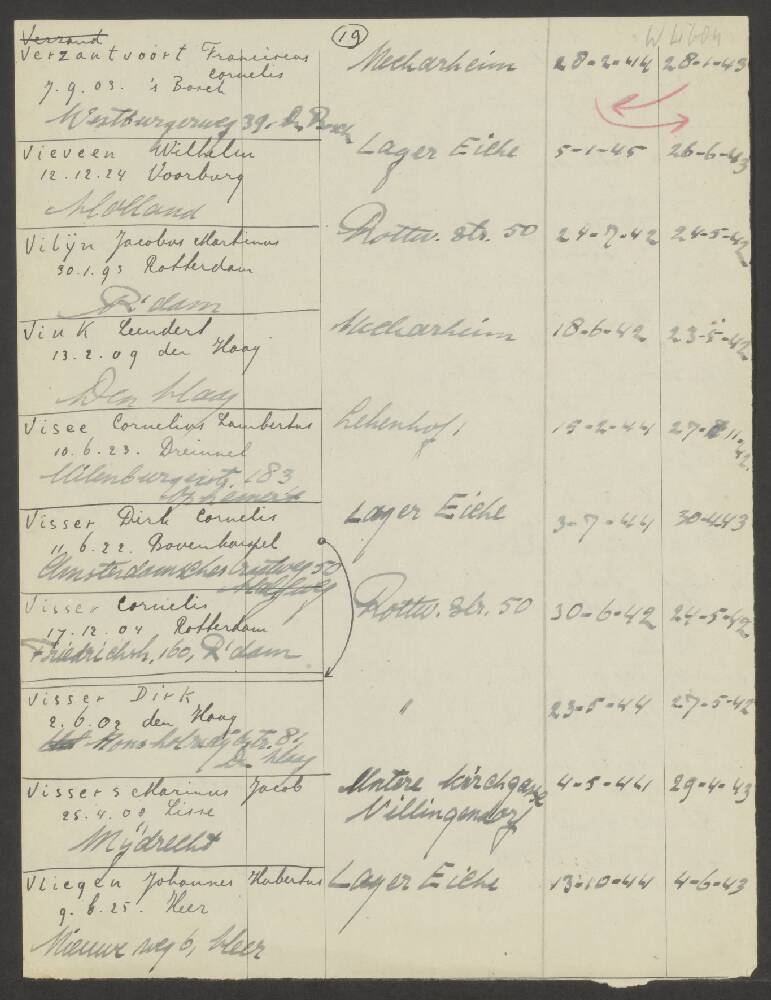 19
Verzantvoort Franciscus Cornelis
7.9.03. 's Bosch
Neckarheim 28-2-44 28-1-43
39. Den Bosch
Vieveen Wilhelm
12.12.24 Voorburg
Holland
Lager Eiche 5-1-45 26-6-43
Vilijn Jacobus Martinus
30.1.93 Rotterdam
R'dam
Rottw. Str. 50 24-7-42 24-5-42
Vink Leendert
13.2.09 den Haag
Den Haag
Neckarheim 18-6-42 23-5-42
Visee Cornelius Lambertus
10.6.23. Dreumel
183
Lehenhof 15-2-44 27-11-42
Visser Dirk Cornelis
11.6.22. Bovenkarspel
50
Lager Eiche 3-7-44 30-4-43
Visser Cornelis
17.12.04 Rotterdam
Friedrichsh, 160, R'dam
Rottw. Str. 50 30-6-42 24-5-42
Visser Dirk
2.6.02 den Haag
Den Haag
" 23-5-44 27-5-42
Vissers Marinus Jacob
25.4.08 Lisse
Mijdrecht
Untere Kirchgasse 4-5-44 29-4-43
Villingendorf
Vliegen Johannes Hubertus
9.6.25. Heer
Nieuwe weg 6, Heer
Lager Eiche 13-10-44 4-6-43